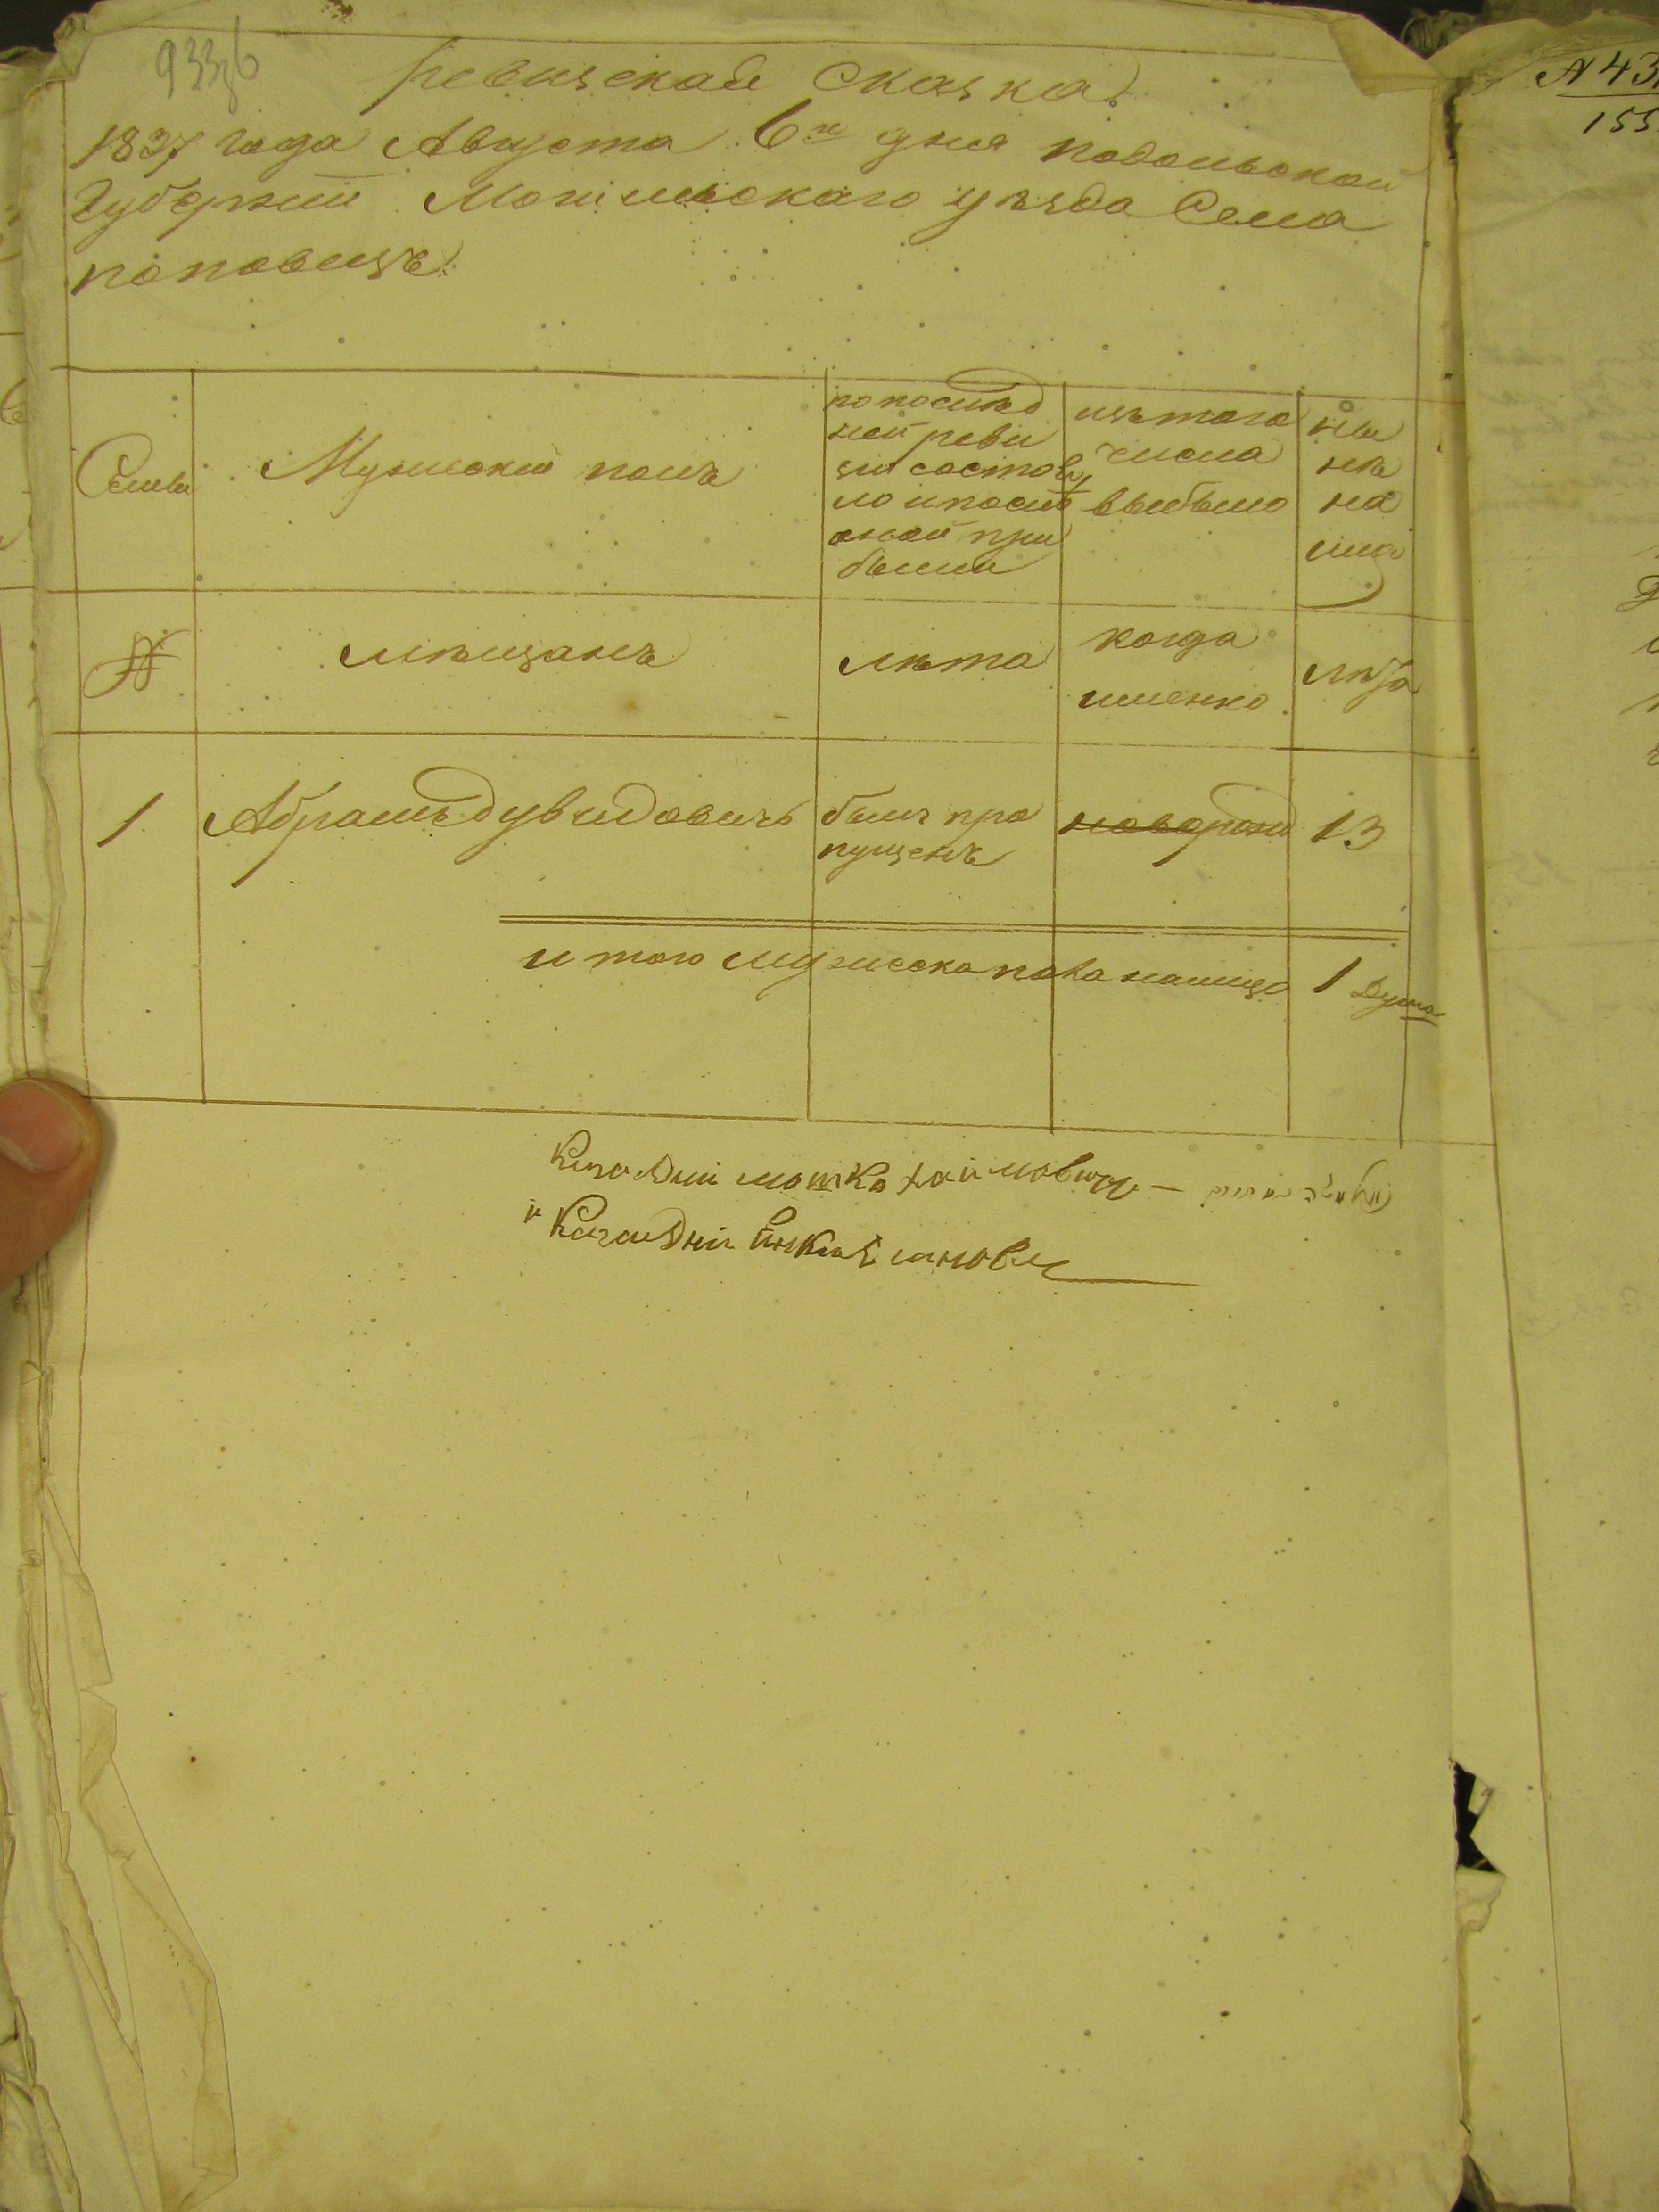 933
Ревизская Сказка.
1837 года Августа 6го дня подольской
Губернии Могилевскаго уезда Села
поповецъ
Семьи
Мужеский полъ
по послед
ней реви
зии состоя
ло и после
оной при
были
изъ того
числа
выбыло
ны
не
на
лицо
№
мещанъ
лета
когда
именно
лета
1 Абрамъ дувидовичъ былъ про
пущенъ
новорожд 13
и того мужеска пола налицо 1 душа
Кагальный мошко хаимовичъ —
и Кагальный
№ 43
155